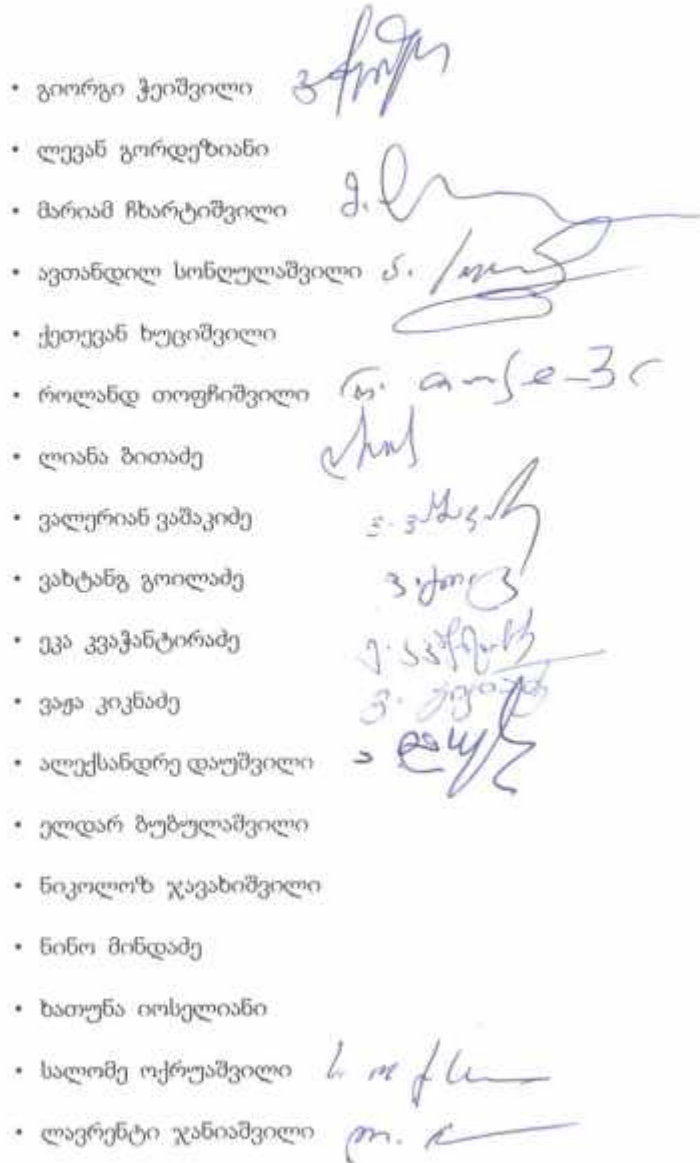 • გიორგი ჭეიშვილი
• ლევან გორდეზიანი
• მარიამ ჩხარტიშვილი
• ავთანდილ სონღულაშვილი
• ქეთევან ხუციშვილი
• როლანდ თოფჩიშვილი
• ლიანა ბითაძე
• ვალერიან ვაშაკიძე
• ვახტანგ გოილაძე
• ეკა კვაჭანტირაძე
• ვაჟა კიკნაძე
• ალექსანდრე დაუშვილი
• ელდარ ბუბულაშვილი
• ნიკოლოზ ჯავახიშვილი
• ნინო მინდაძე
• ხათუნა იოსელიანი
• სალომე ოქრუაშვილი
• ლავრენტი ჯანიაშვილი